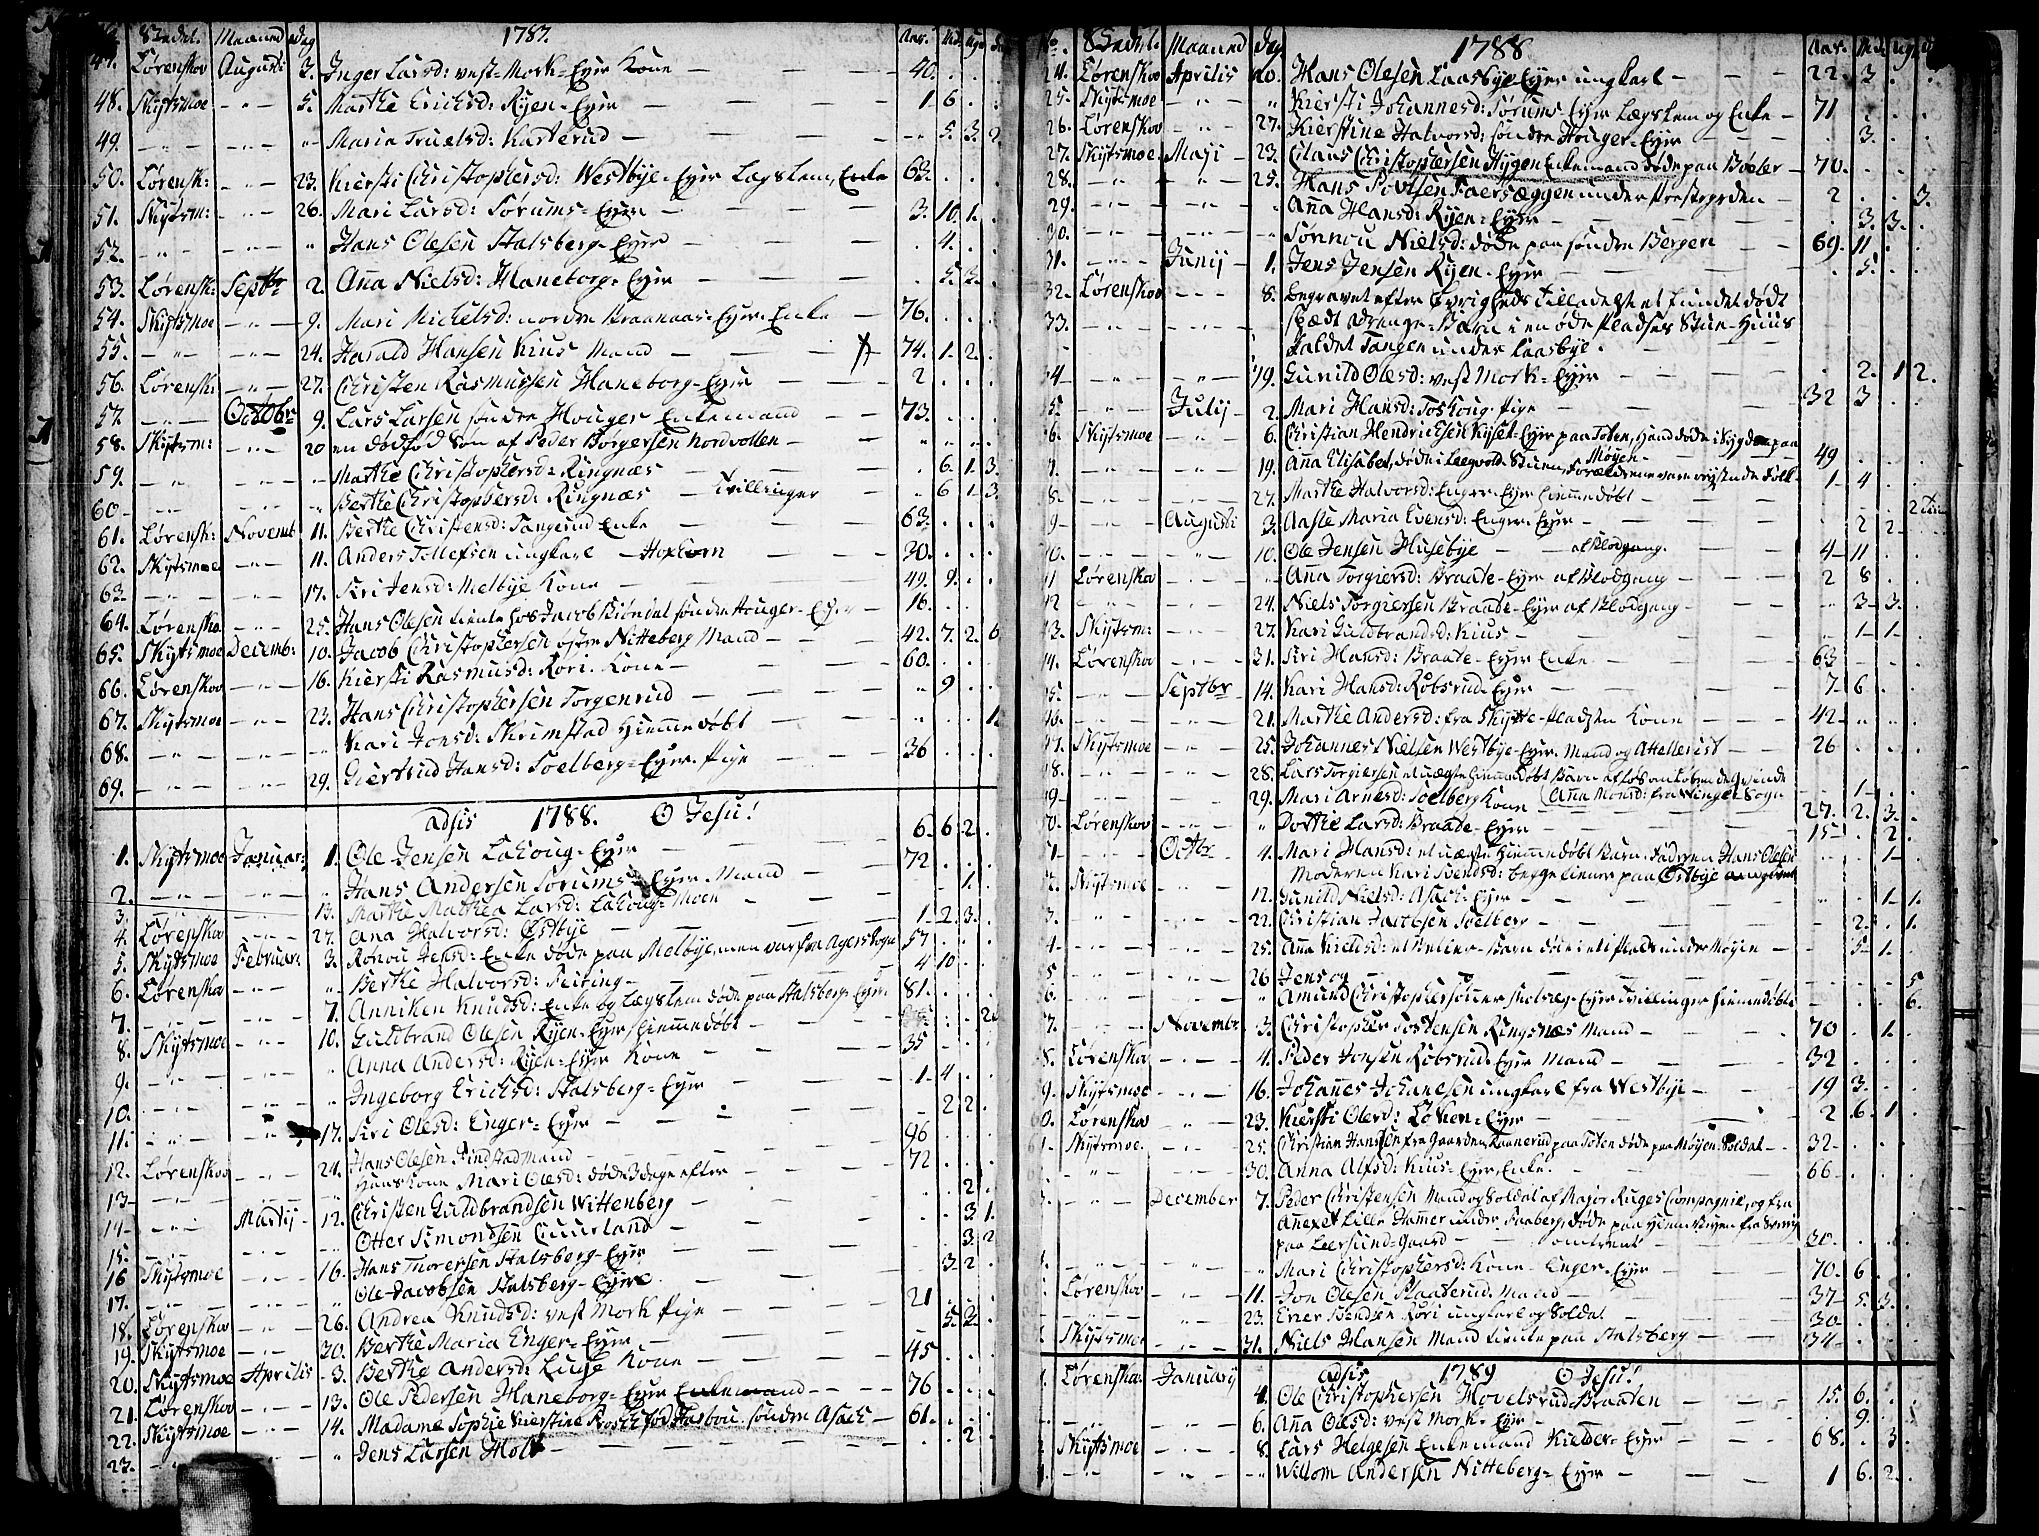 No. Stedet. Maaned dag 1787. Aar. Md. Ug. D.
47. Lørenskov Augusti 3. Inger Larsd: vest-Mork-Eyer Kone — 40. . . .
48. Skytsmoe — " — 5. Marthe Erichsd: Ryen-Eyer — 1 6 . .
49. — " — — " — " Maria Truelsd: Karterud — " 5. 3. 2.
50. Lørensk: — " — 23. Kiersti Christophersd: Westbye-Eyer Lægslem, Enke 63. . . .
51. Skytsm: — " — 26. Mari Larsd: Sørums-Eyer — 3. 10. 1. .
52. — " — — " — " Hans Olesen Stalsberg-Eyer — . 4. . .
53. Lørensk: Septbr 2. Aña Nielsd: Haneborg-Eyer — . 5. 3. .
54. Skytsmoe — " — 9. Mari Michelsd: nordre Braanaas-Eyer-Enke — 76. . . .
55. — " — — " — 24. Harald Hansen Kius Mand — 74. 1. 2. .
56. Lørensk: — " — 27. Christen Rasmussen Haneborg-Eyer — 2 . . .
57. — " — Octobr 9. Lars Larsen søndre Houger Enkemand — 73. . . .
58. Skytsm: — " — 20 en dødfød Søn af Peder Borgersen Nordvollen — " " " "
59. — " — — " — " Marthe Christophersd: Ringnæs — . 6. 1. 3.
60. — " — — " — " Berthe Christophersd: Ringnæs — Tvillinger " 6 1. 3.
61. Lørensk: Novemb 11. Berthe Christensd: Tangerud Enke 63. . . .
62. Skytsmoe — " — 11. Anders Tollefsen ungkarl — 20. . . .
63. — " — — " — 17. Siri Jensd: Melbye Kone — 49. 9. . .
64. Lørensko — " — 25. Hans Olesen tiente hos Jacob Biørdal søndre Houger-Eyer — 16. . . .
65. Skytsmoe Decemb: 10. Jacob Christophersen østre Nitteberg Mand — 42. 7. 2. 6
66. Lørenskov — " — 16. Kiersti Rasmusd: Rori. Kone — 60. . . .
67. Skytsmoe — " — 23. Hans Christophersen Torgenrud — " 9 . .
68. — " — — " — " Kari Jonsd: Skrimstad Hiemmedøbt — " . . 1.
69. — " — — " — 29. Giertrud Hansd: Soelberg-Eyer. Pige — 36 . . .
adsis 1788. O Jesu!
1. Skytsmoe Januar: 1. Ole Jensen Lahoug-Eyer — 6. 6 2. .
2. — " — — " — " Hans Andersen Sørums-Eyer. Mand — 72 . . .
3. — " — — " — 13. Marthe Mathea Larsd: Lahoug-Moen — . . 1. .
4. Lørenskov — " — 27. Ana Halvorsd: Østbye — 1. 2. 3. .
5. Skytsmoe Februar: 3. Rønou Jensd: Enke døde paa Melbye, men var fra Agers Sogn 57 . . .
6. Lørensko — " — " Berthe Halvorsd: Feiring — 4 10 . .
7. — " — — " — 7. Anniken Knudsd: Enke og Lægslem døde paa Stalsberg-Eyer 81. . . .
8. Skytsmoe — " — 10. Guldbrand Olesen Ryen-Eyer, hiemmedøbt — . . . 2
9. — " — — " — " Anna Andersd: Ryen-Eyer Kone — 35 . . .
10. — " — — " — " Ingeborg Erichsd: Stalsberg-Eyer — 1. 4 . .
11. — " — — " — 17. Siri Olesd: Enger-Eyer — . 2 2. .
12. Lørenskov — " — 24. Hans Olesen Rindstad Mand — 96 . . .
13. — " — — " — " Hans Kone Mari Olesd: døde 3 dage efter — 72 . . .
14. — " — Martij 12. Christen Guldbrandsen Wittenberg — . . 2. .
15. — " — — " — " Otter Simondsen Cuurland — . . 3 1.
16 Skytsmoe — " — 16. Hans Thoresen Stalsberg-Eyer — . . 3. 2
17. — " — — " — " Ole Jacobsen Stalsberg-Eyer — . 3 2 .
18. Lørensko — " — 26. Andrea Knudsd: vest Mork Pige — 21 . . .
19. Skytsmoe — " — 30. Berthe Maria Enger-Eyer — . 5. 2. .
20. Skytsmoe Aprilis 3. Berthe Andersd: Kone — 45 . . .
21. Lørenskov — " — 13. Ole Pedersen Haneborg-Eyer Enkemand — 76 . . .
22. Skytsmoe — " — 14. Madame Sophie Kierstine født søndre Asach — 61. . . .
23. — " — — " — " Jens Larsen Moe — . . 2. .
No. Stedet. Maaned Dag. 1788 Aar. Md. Ug. D.
24. Lørensko Aprilis 20. Hans Olesen Laasbye-Eyer ungkarl — 22. 3. . .
25. Skytsmoe — " — " Kiersti Johannesd: Sørums-Eyer Lægslem og Enke — 71 . . .
26. Lørenskov — " — 27. Kierstine Halvorsd: søndre Houger-Eyer — . 3. . .
27. Skytsmoe. Maji 23. Claus Christophersen Hygen Enkemand døde paa Bøler — 70. . . .
28. — " — — " — 25. Hans Povlsen Faersæggen under Prestegrden — 2 . . 3.
29. — " — — " — " Aña Hansd: Ryen-Eyer — . 3. 3. .
30. — " — — " — " Sønnou Nielsd: døde paa søndre Bergen — 69. 11 . .
31. — " — Junij 1. Jens Jensen Ryen-Eyer — . 5. . .
32. Lørenskov — " — 8. Begravet efter Øvrigheds tilladelse et fundet dødt
33. — " — — " — spædt drenge-Barn i en øde Pladses Stue-Huus
kaldet Tangen under Laasbye.
34 — " — — " — 19. Gunild Olesd: vest Mork-Eyer — . 2. 1 2.
35. — " — Julij 2. Mari Hansd: Toskoug. Pige — 32 3 . .
36. Skytsmoe — " — 6. Christian Hendrichsen Kyset-Eyer paa Toten, Hand døde i Sygdom paa
Moyen — 49 . . .
37. — " — — " — 19. Aña Elisabet, døde i Leegvold-Stuen, Forældrene vare reysende Folk 1 4 . .
38. — " — — " — 27. Marthe Halvorsd: Enger-Eyer hiemmedøbt — . . . 2
39 — " — Augusti 3. Aaste Maria Evensd: Enger-Eyer — . 2 2. .
40. — " — — " — 10. Ole Jensen Husebye — af Blodgang. — 4 11 . .
41 Lørensko — " — " Aña Torgiersd: Braate-Eyer af Blodgang — 2 8 . .
42 — " — — " — 24. Niels Torgiersen Braate-Eyer af Blodgang — " 3 3. .
43. Skytsm: — " — 27. Kari Guldbrandsd: Kius — . 1 1. .
44. Lørenskov — " — 31. Siri Hansd: Braate-Eyer Enke — 63 . . .
45 — " — Septbr 14. Kari Hansd: Robsrud-Eyer — 7 6 . .
46. — " — — " — 21. Marthe Andersd: fra Skytte-Pladsen Kone — 42 " " "
47. Skytsmoe — " — 25. Johannes Nielsen Westbye-Eyer. Mand og Attellerist — 26 . . .
48. — " — — " — 28. Lars Torgiersen et uægte hiemmedøbt Barn af løs omløbende qvinde
49. — " — — " — 29. Mari Arnesd: Soelberg Kone (Aña Monsd: fra Winger Sogn . 1 . .
50. Lørenskov — " — " Dorthe Larsd: Braate-Eyer — 27. 2. 3. .
51 — " — Octbr 4. Mari Hansd: et uægte hiemmedøbt Barn. Faderen Hans Olesen 15 . 2. .
Moderen Kari Svendsd: begge tienere paa Østbye . . 1 .
52. Skytsmoe — " — 12. Gunild Nielsd: Asach-Eyer — " . 1 1.
53. — " — — " — 22. Christian Jacobsen Soelberg — . 2. . 1.
54 — " — — " — 25. Aña Nielsd: et Barn døde i et Plads under Moyen — . 5 1. .
55 — " — — " — 26 Jens og — . . . 5
56. — " — — " — " Amund Christophersønner Eyer tvillinger hiemmedøbte — . . . 6.
57. — " — Novembr 3. Christopher Tostensen Ringnæs Mand — 70 . 1. .
58. Lørensko — " — 4. Peder Jonsen Robsrud-Eyer Mand — 32 . . .
59. Skytsmoe — " — 16. Johañes Johañesen ungkarl fra Westbye — 19 3. . .
60. Lørensko — " — 23. Kiersti Olesd: Løken-Eyer — 2 6. 1 .
61. Skytsmoe. — " — 25. Christian Hansen fra Gaarden Raanerud paa Toten døde paa Moyen. Soldat — 32 . . .
— " — — " — 30. Anna Alfsd: Kius-Eyer. Enke. — 66 . . .
3. — " — December 7. Peder Christensen Mand og Soldat af Major Ruges Compagnie, og fra
Anexet Lille Hamer under Faaberg, døde paa
paa Leersund-Gaard — omtrent — 30. . . .
— " — — " — " Mari Christophersd: Kone Enger-Eyer — 70. 6 . .
Lørenskov — " — 11. Jon Olesen Plaaterud Mand — 37 5. 3. .
— " — — " — 23. Svendsen Rori ungkarl og Soldat — 30 . . .
Skytsmoe — " — 31. Niels Hansen Mand tiente paa Stalsberg — 34 . . .
adsis 1789 O Jesu!
1. Lørensko Januarij 4. Ole Christophersen Hovelsrud Braaten — 15. 6. . .
— " — — " — 6. Aña Olesd: vest Mork-Eyer — . 9. . .
Skytsmoe — " — 8. Lars Helgesen Enkemand Kielder-Eyer — 68. . 3. .
— " — — " — " Willom Andersen Nitteberg-Eyer — 1 6. 2. .